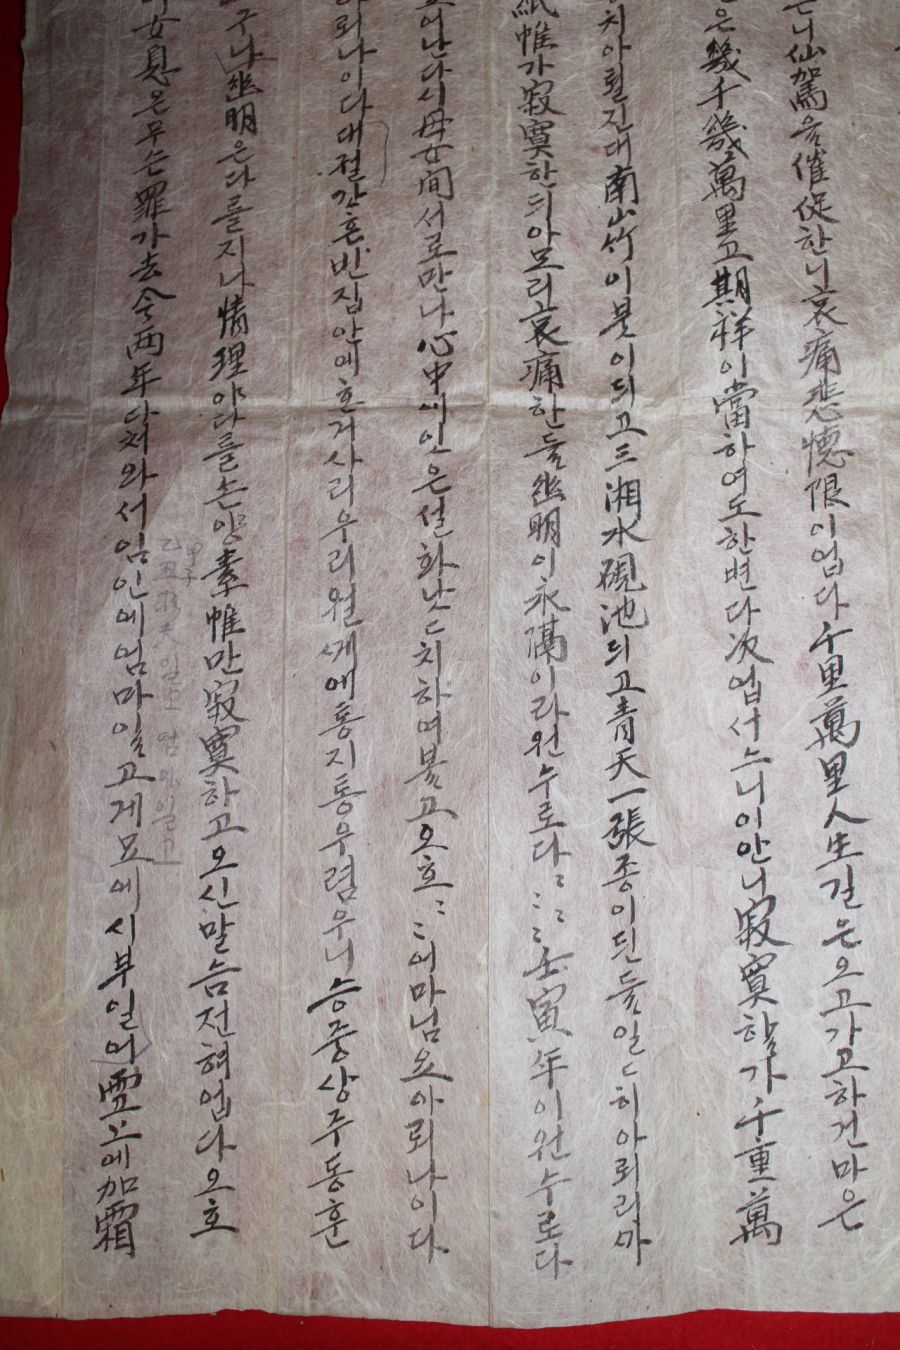 느니仙駕을催促한니哀痛悲憶限이업다千里萬里人生길은오고가고하건마은
은幾千幾萬里고期祥이當하여도한번다次업서느니이안니寂寞할가千重萬
치아뢸진대南山竹이붓이되고三湘水硯池되고青天一張종이된들일〻히아뢰리까
紙帷가寂寞한듸아모리哀痛한들幽明이永隔이라원수로다〻〻〻〻壬寅年이원수로다
난다시母女間서로만나心中에잇은설화낫〻치하며불고오호〻〻어마님요아뢰나이다
아뢰나이다대혼반집안에호거사리우리월게에통지통우렴우니승중상주동훈
구나幽明은다를지나情理야다를손양素帷만寂寞하고오신말슴전혀업다오호
女息은무슨罪가去今両年다처와서임인에엄마일고게묘에시부일어雪上에加霜
甲子
乙丑